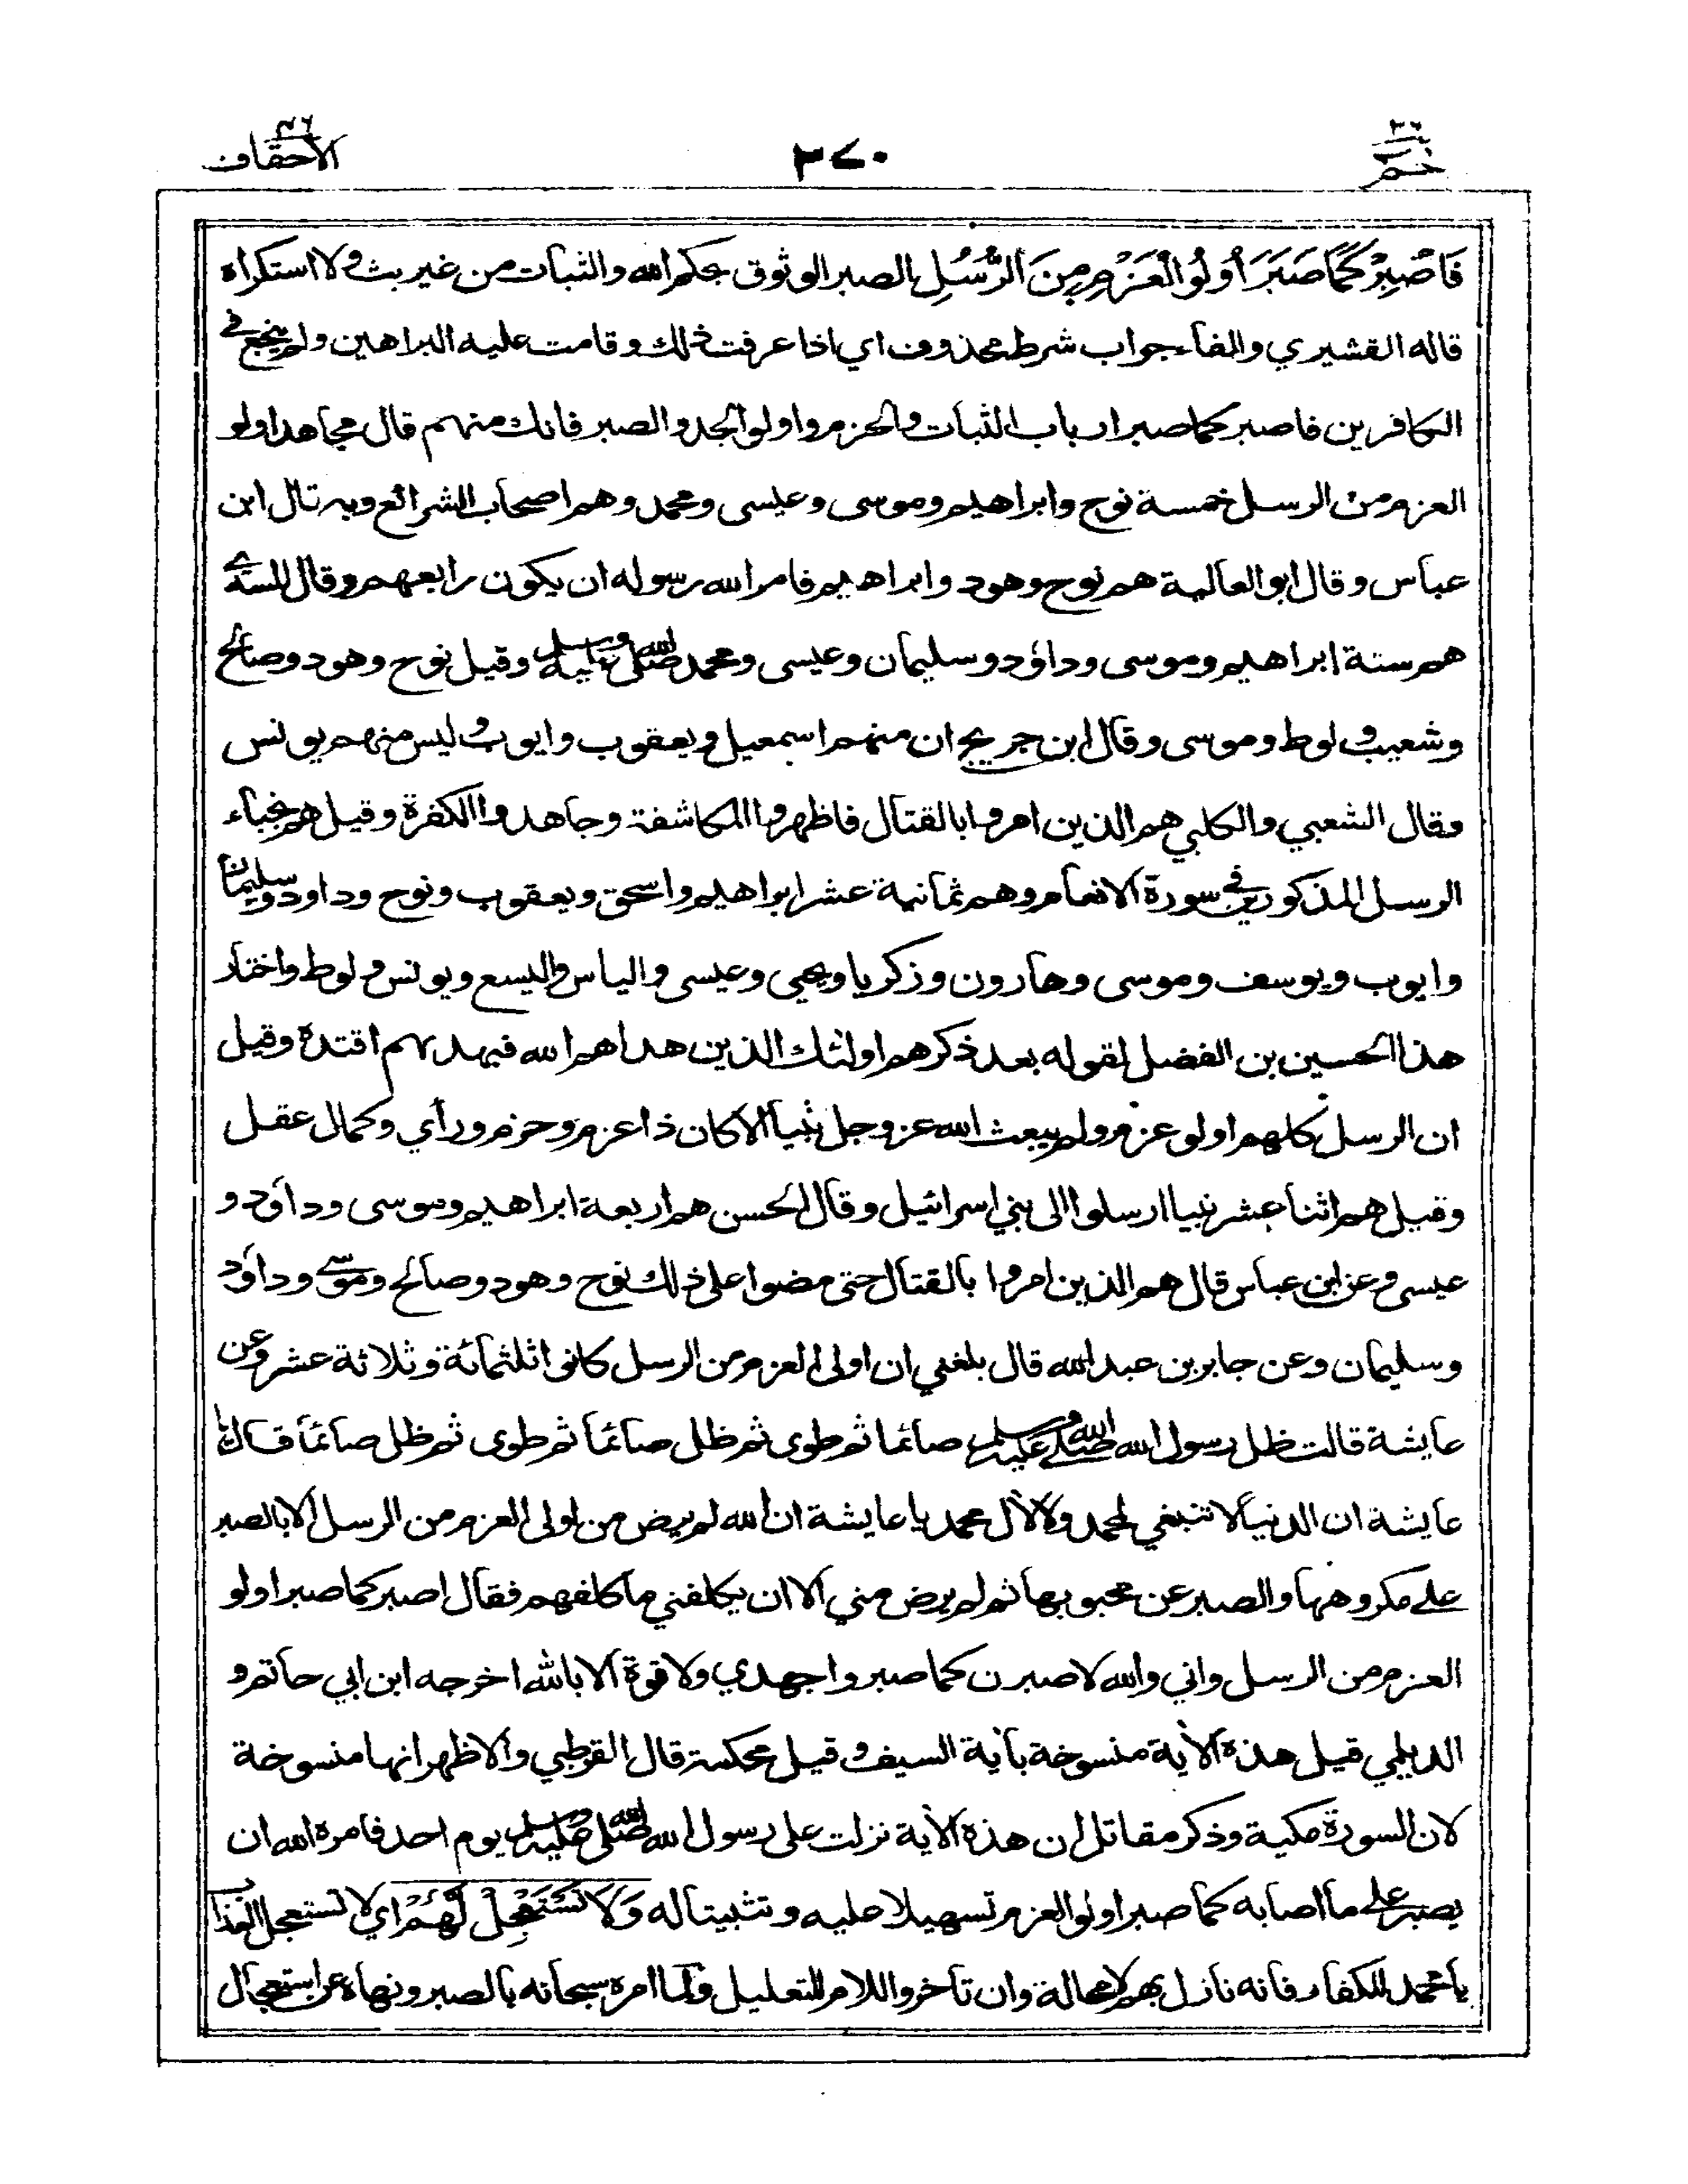 حم ٢٦
٣٧٠
الأحقاف ٤٦
فَاصْبِرْ كَمَا صَبَرَ أُولُوا الْعَزْمِ مِنَ الرُّسُلِ الصبر الوثوق بحكم الله والثبات من غير بث ولا استكراه
قاله القشيري والفاء جواب شرط محذوف اي اذا عرفت ذلك وقامت عليه البراهين ولم ينجع في
الكافرين فاصبر كما صبر ارباب الثبات والحزم واولو الجد والصبر فانك منهم قال مجاهد اولو
العزم من الرسل خمسة نوح وابراهيم وموسى وعيسى ومحمد وهم اصحاب الشرائع وبه قال ابن
عباس وقال ابو العالية هم نوح وهود وابراهيم فامر الله رسوله ان يكون رابعهم وقال السدي
هم ستة ابراهيم وموسى وداؤد وسليمان وعيسى ومحمد صلى الله عليه وسلم وقيل نوح وهود وصالح
وشعيب ولوط وموسى وقال ابن جريج ان منهم اسمعيل ويعقوب وايوب وليس منهم يونس
وقال الشعبي والكلبي هم الذين امروا بالقتال فاظهروا المكاشفة وجاهدوا الكفرة وقيل هم نجباء
الرسل المذكورين في سورة الانعام وهم ثمانية عشر ابراهيم واسحق ويعقوب ونوح وداود وسليمان
وايوب ويوسف وموسى وهارون وزكريا ويحيى وعيسى والياس واليسع ويونس ولوط واختار
هذا الحسين بن الفضل لقوله بعد ذكرهم اولئك الذين هداهم الله فبهدىهم اقتده وقيل
ان الرسل كلهم اولو عزم ولم يبعث الله عز وجل نبيا الا كان ذا عزم وحزم ورأي وكمال عقل
وقيل هم اثنا عشر نبيا ارسلوا الى بني اسرائيل وقال الحسن هم اربعة ابراهيم وموسى وداؤد و
عيسى وعن ابن عباس قال هم الذين امروا بالقتال حتى مضوا على ذلك نوح وهود وصالح وموسى وداؤد
وسليمان وعن جابر بن عبد الله قال بلغني ان اولى العزم من الرسل كانوا ثلثمائة وثلاثة عشر وعن
عايشة قالت ظل رسول الله صلى الله عليه وسلم صائما ثم طوى ثم ظل صائما ثم طوى ثم ظل صائما قال يا
عايشة ان الدنيا لا تنبغي لمحمد ولا لآل محمد يا عايشة ان الله لم يرض من اولى العزم من الرسل الا بالصبر
على مكروهها والصبر عن محبوبها ثم لم يرض مني الا ان يكلفني ما كلفهم فقال اصبر كما صبر اولو
العزم من الرسل واني والله لاصبرن كما صبروا جهدي ولا قوة الا بالله اخرجه ابن ابي حاتم و
الديلمي قيل هذه الآية منسوخة بآية السيف وقيل محكمة قال القرطبي والاظهر انها منسوخة
لان السورة مكية وذكر مقاتل ان هذه الآية نزلت على رسول الله صلى الله عليه وسلم يوم احد فامره الله ان
يصبر على ما اصابه كما صبر اولوا العزم تسهيلا عليه وتثبيتا له وَلَا تَسْتَعْجِلْ لَّهُمْ اي لا تستعجل العذاب
يا محمد للكفار فانه نازل بهم لا محالة وان تأخر واللام للتعليل ولما امره سبحانه بالصبر ونهاه عن استعجال